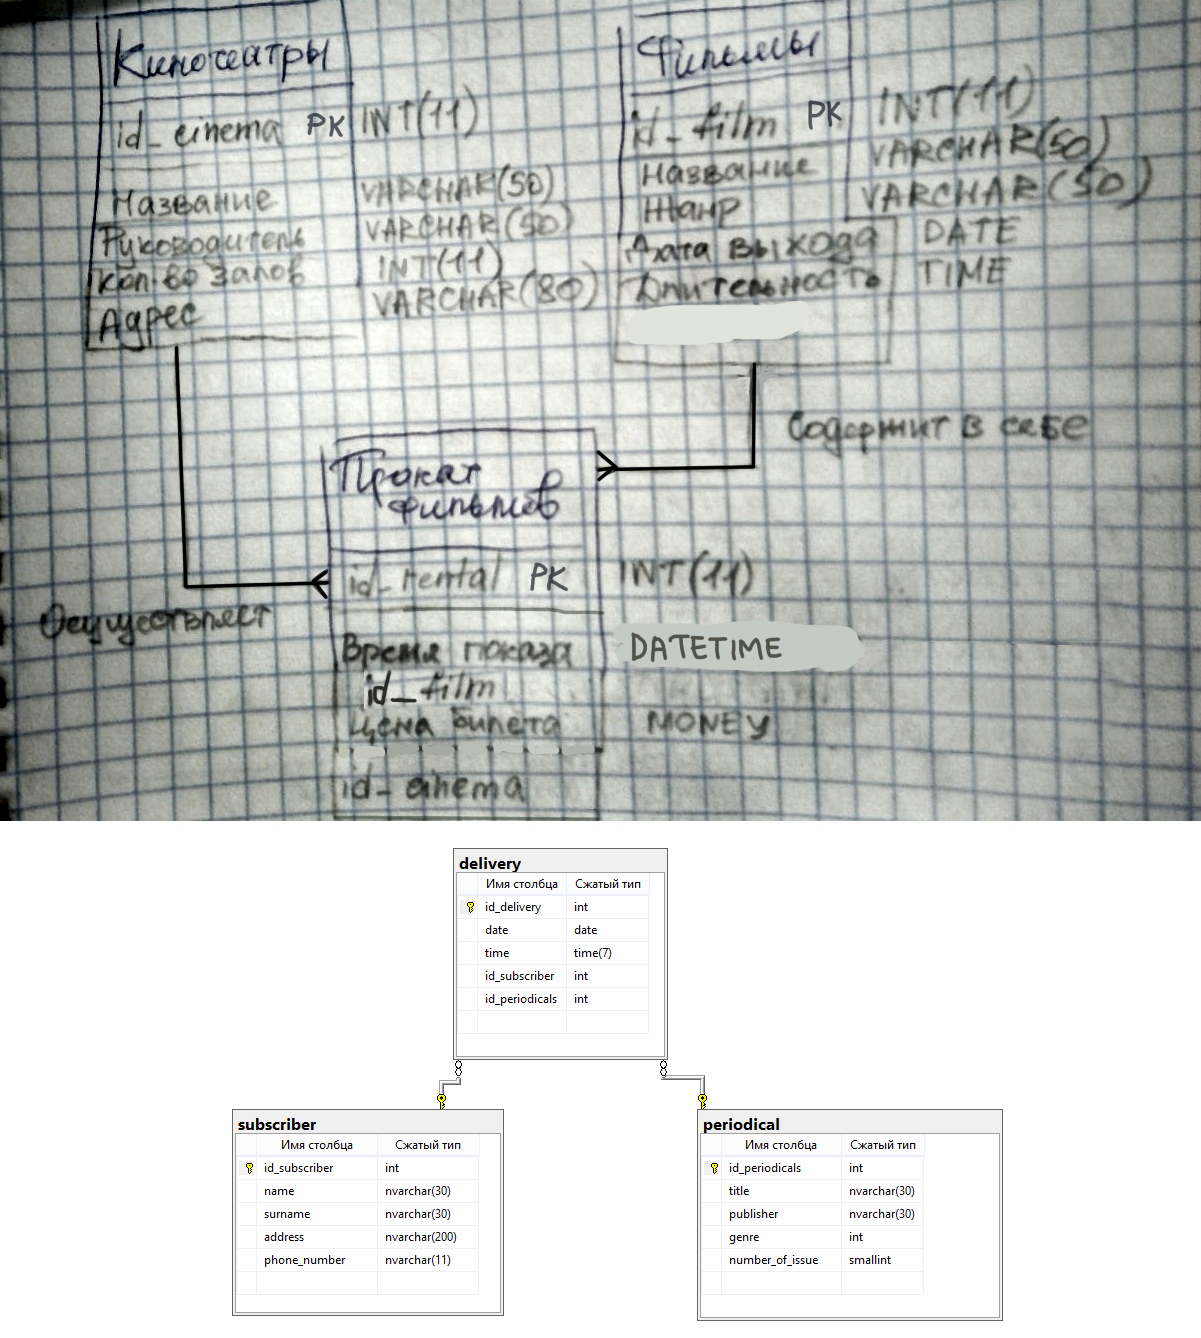 Кинотеатры
id_cinema PK INT(11)
Название VARCHAR(50)
Руководитель VARCHAR(50)
Кол-во залов INT(11)
Адрес VARCHAR(80)
Фильмы
id_film PK INT(11)
Название VARCHAR(50)
Жанр VARCHAR(50)
Дата выхода DATE
Длительность TIME
Содержит в себе
Осуществляет
Прокат
фильмов
id_rental PK INT(11)
Время показа DATETIME
id_film
Цена билета MONEY
id_cinema
delivery
Имя столбца Сжатый тип
id_delivery int
date date
time time(7)
id_subscriber int
id_periodicals int
subscriber
Имя столбца Сжатый тип
id_subscriber int
name nvarchar(30)
surname nvarchar(30)
address nvarchar(200)
phone_number nvarchar(11)
periodical
Имя столбца Сжатый тип
id_periodicals int
title nvarchar(30)
publisher nvarchar(30)
genre int
number_of_issue smallint